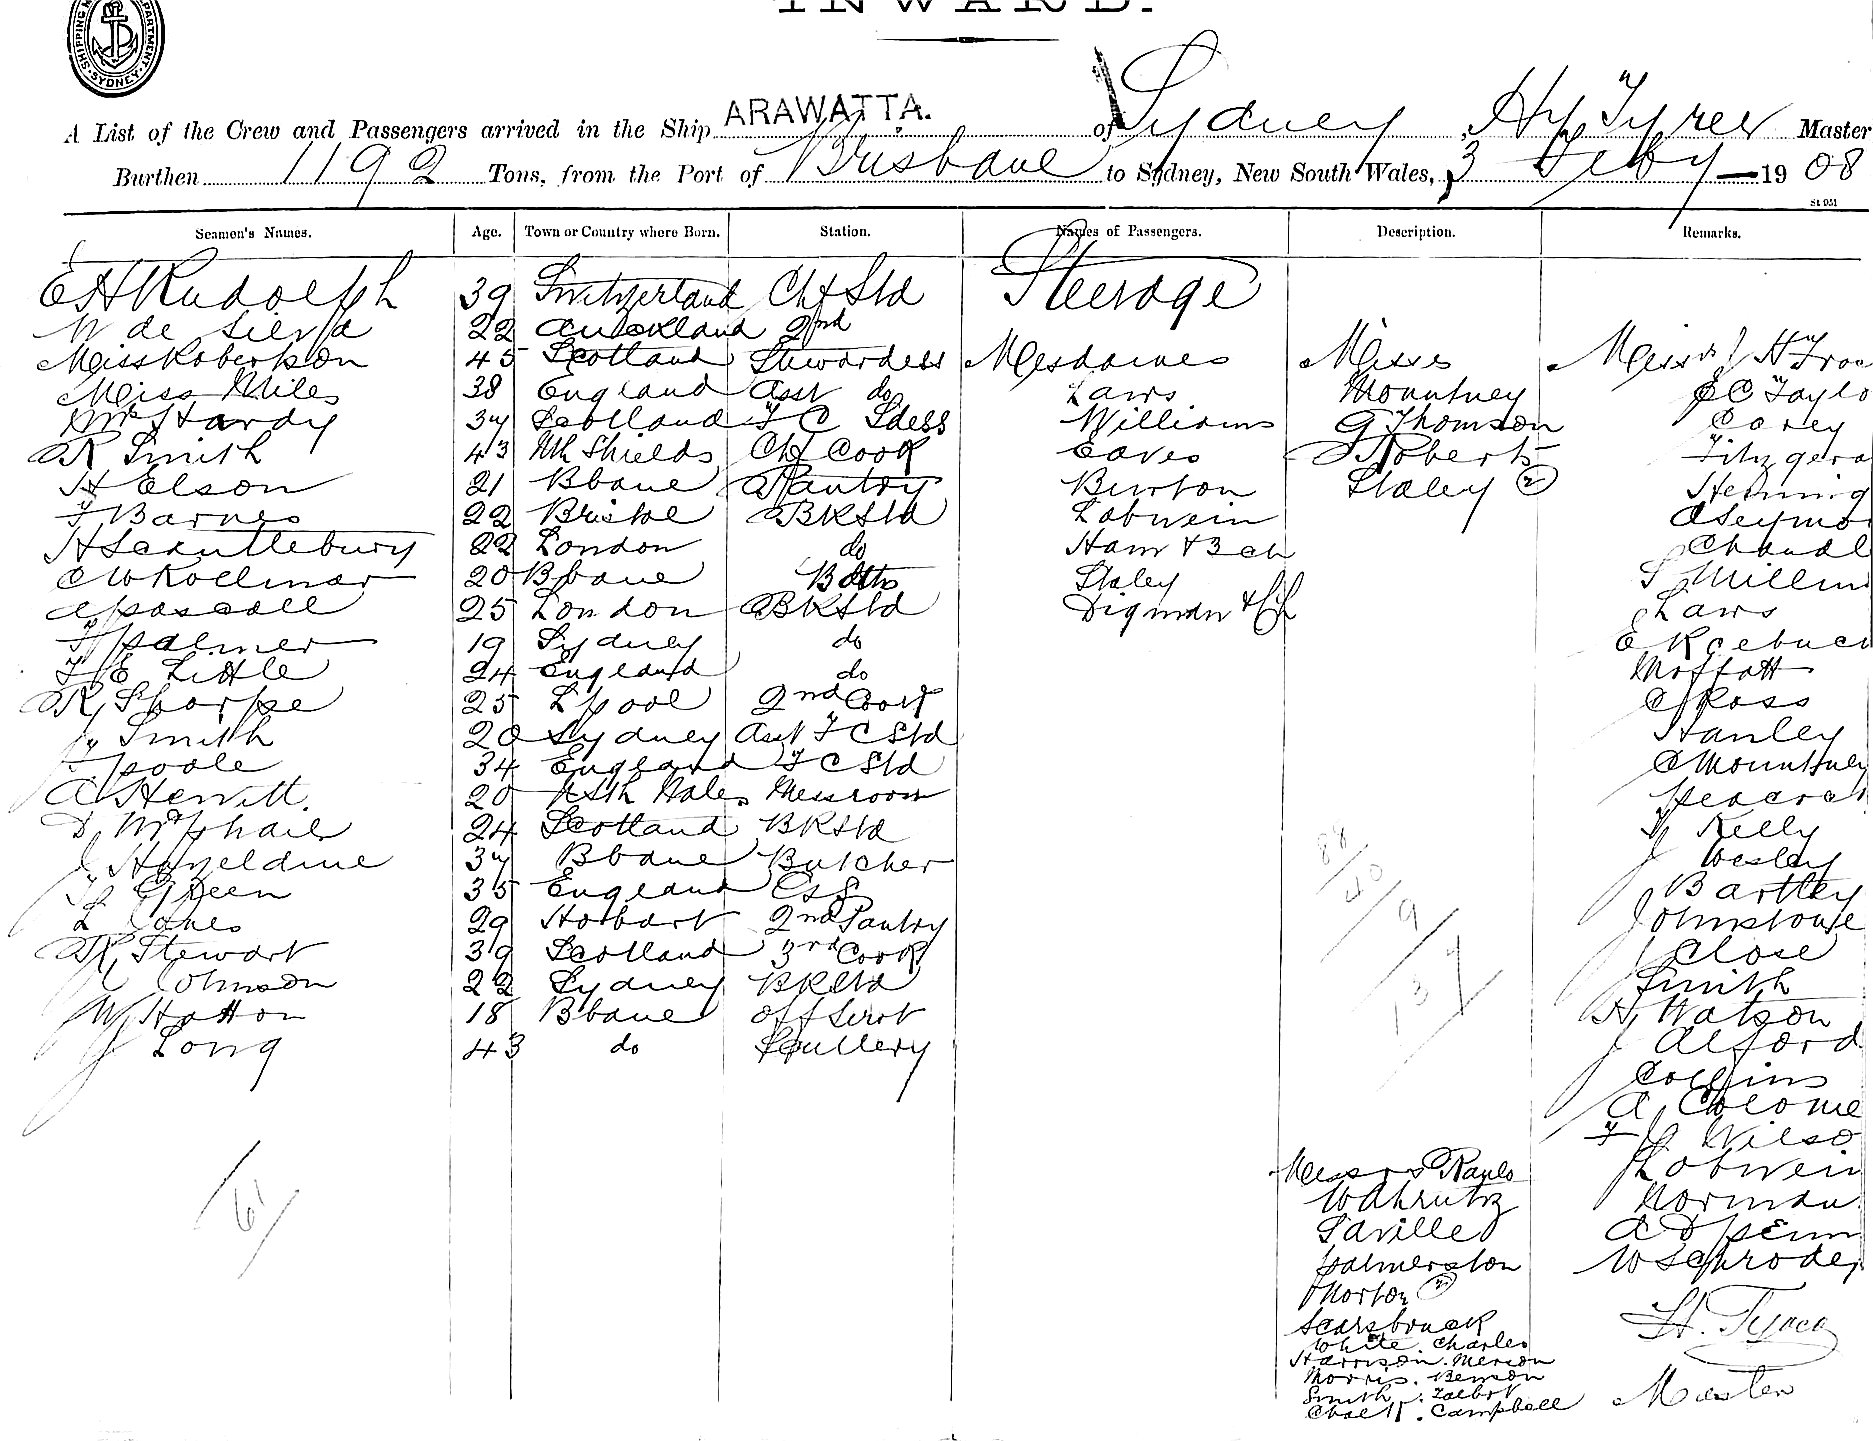 INWARD.
SYDNEY
A List of the Crew and Passengers arrived in the Ship ARAWATTA. of Sydney, Hy Tyrer Master
Burthen 1192 Tons, from the Port of Brisbane to Sydney, New South Wales, 3 Feby 1908
St 931
Seamen's Names. Age. Town or Country where Born. Station. Names of Passengers. Description. Remarks.
E H Rudolph 39 Switzerland Chf Std Steerage
W de Silva 22 Auckland 2nd
Miss Robertson 45 Scotland Stewardess Mesdames Misses Messrs J H
Miss Miles 38 England Asst do Laws Mountney C Taylo
Mrs Hardy 34 Scotland F C Sdess Williams G Thomson Carey
R Smith 43 Nth Shields Chf Cook Eaves Roberts Fitzgera
H Elson 21 Bbane Pantry Burton Staley 2 Henning
F Barnes 22 Bristol BRStd Lobwein A Seymo
H Scuttlebury 22 London do Ham & 3 ch Chandl
C W Kollmar 20 Bbane Bths Staley S Millin
A Pascall 25 London BRStd Digman & Laws
F Palmer 19 Sydney do E Roebuck
F E Little 24 England do Moffatt
R Sharpe 25 Lpool 2nd Cook C Ross
J Smith 20 Sydney Asst F C Std Stanley
Poole 34 England F C Std C Mountney
A Hewitt. 20 Nsth Wales Messroom
D McPhail 24 Scotland BRStd J Kelly
J Hazeldine 34 Bbane Butcher Wesley
Green 35 England Bartley
L 29 Hobart 2nd Pantry Johnstone
R Stewart 39 Scotland 3rd Cook Close
J Johnson 22 Sydney BRStd Smith
W Hatton 18 Bbane Off Servt H Watson
J Long 43 do Scullery J Alford
Collins
A Colome
F J Wilso
Messrs Lobwein
Wahrutz Norman
Saville A D Penn
Palmerston W Schroder
Norton 2
Scarsbruck H. Tyrer
White Charles
Harrison. Merson
Morris. Benson Master
Smith. Talbot
Campbell
88
40
9
137
61